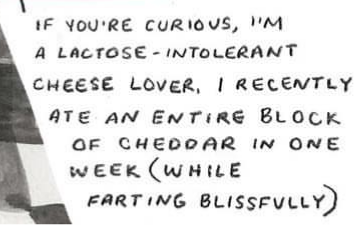 IF YOU'RE CURIOUS, I'M
A LACTOSE-INTOLERANT
CHEESE LOVER, I RECENTLY
ATE AN ENTIRE BLOCK
OF CHEDDAR IN ONE
WEEK (WHILE
FARTING BLISSFULLY)